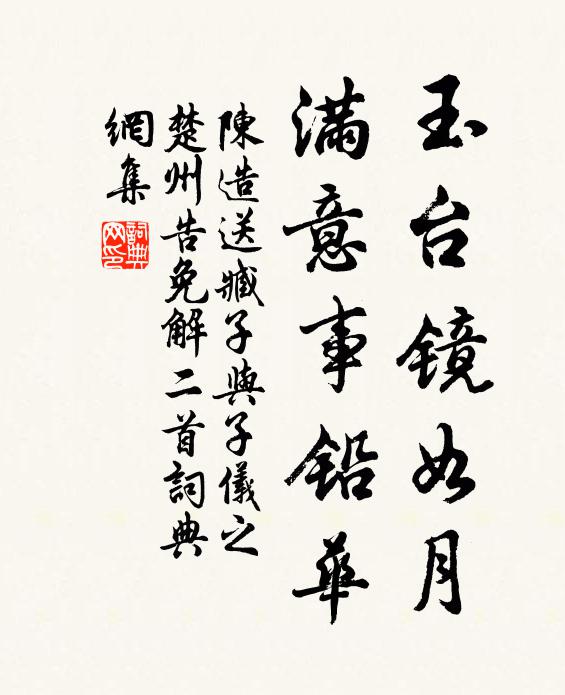 玉台镜如月
满意事铅华
陳造送臧子與子儀之
楚州告免解二首詞典
網集
詞典
网印